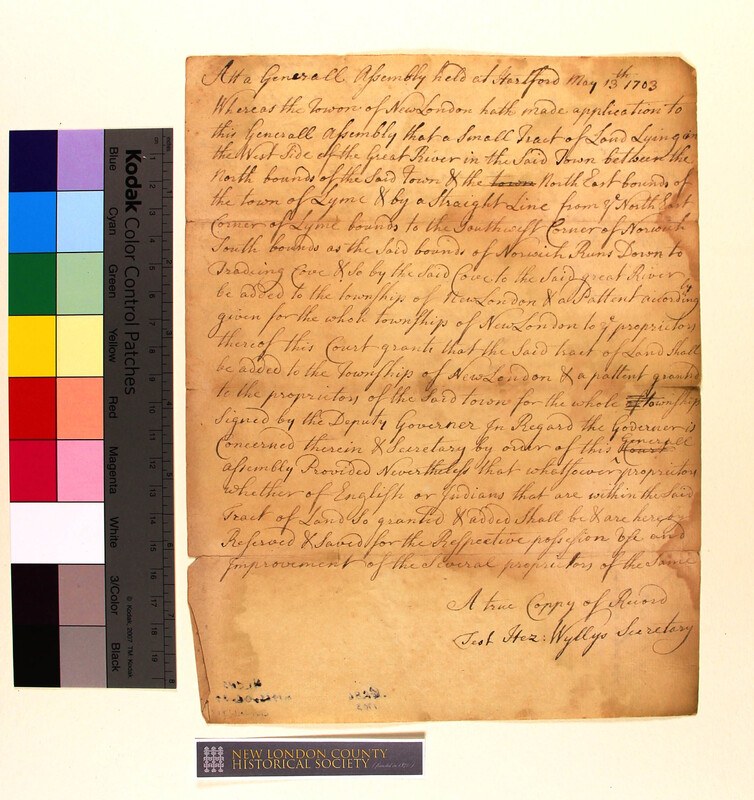 Att a Generall Assembly held at Hartford May 13th 1703
Whereas the Town of New London hath made application to
this Generall Assembly that a Small Tract of Land Lying on
the West Side of the Great River in the Said Town between the
North bounds of the Said Town & the town North East bounds of
the town of Lyme & by a Straight Line from ye North East
Corner of Lyme bounds to the Southwest Corner of Norwich
South bounds as the Said bounds of Norwich Runs Down to
Tradeing Cove & So by the Said Cove to the Said great River
be added to the township of New London & a Pattent acording ly
given for the whole township of New London to ye proprietors
thereof this Court grants that the Said tract of Land Shall
be added to the Township of New London & a pattent granted
to the proprietors of the Said town for the whole of township
Signed by the Deputy Governer In Regard the Goverener is
Concerned therein & Secretary by order of this Court Generall
assembly Provided Nevertheless that whatsoever proprietors
whether of English or Indians that are within the Said
Tract of Land So granted & added Shall be & are hereby
Reserved & Saved for the Respective possesion use and
Improvement of the Several proprietors of the Same
A true Coppy of Record
Test Hez: Wyllys Secretary
Kodak Color Control Patches
Blue
Cyan
Green
Yellow
Red
Magenta
White
3/Color
Black
© Kodak, 2007 TM: Kodak
NEW LONDON COUNTY
HISTORICAL SOCIETY